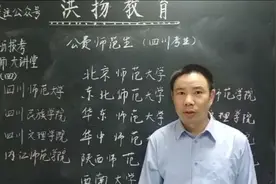 注公众号
洪扬教育
公费师范生（四川考生）
报考
大讲堂
（四）
北京师范大学
四川师范大学
东北师范大学
师范学院
四川民族学院
华东师范大学
理学院
四川文理学院
华中师范
内江师范学院
陕西师范
西南大学